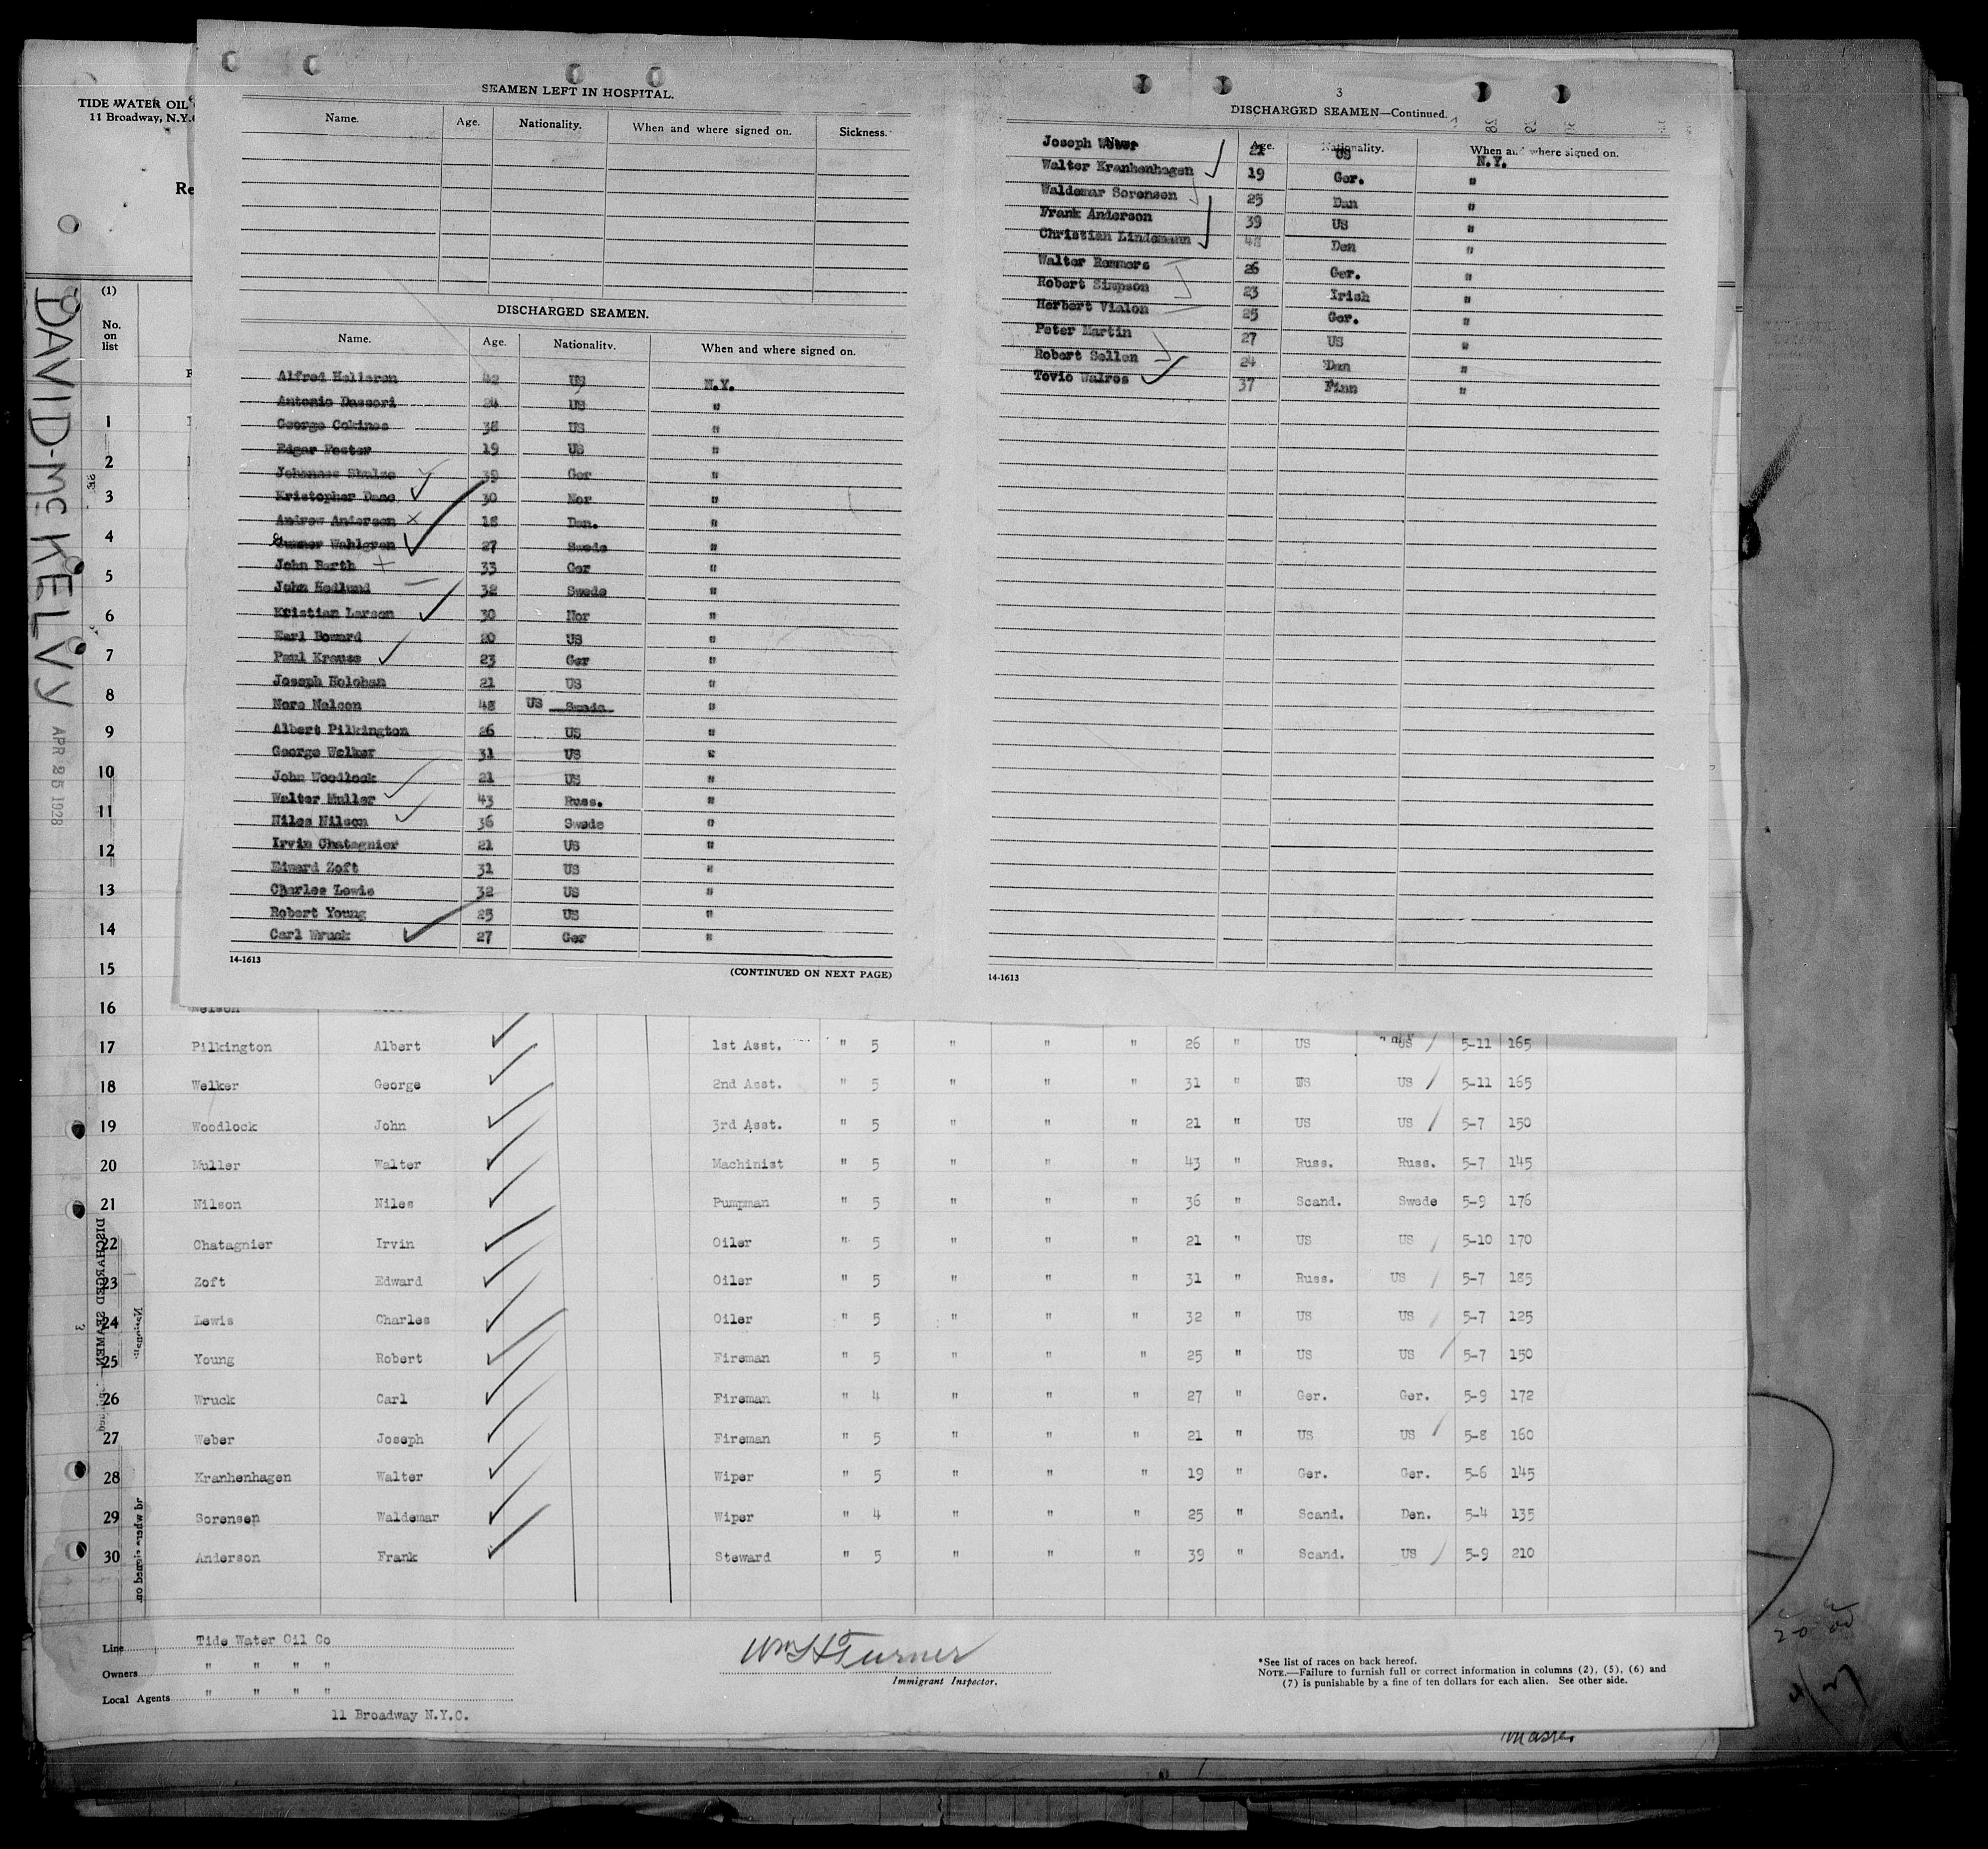 TIDE WATER OIL
11 Broadway, N.Y.
Re
DAVID-McKELVY
APR 25 1928
(1)
No.
on
list
SEAMEN LEFT IN HOSPITAL.
Name. Age. Nationality. When and where signed on. Sickness.
DISCHARGED SEAMEN.
Name. Age. Nationality. When and where signed on.
Alfred Helleren 42 US N.Y.
Antonio Dassori 24 US "
George Cokinos 38 US "
Edgar Foster 19 US "
Johannes Shulze 39 Ger "
Kristopher Dane 30 Nor "
Andrew Anderson 18 Dan. "
Gunnor Wahlgren 27 Swede "
John Barth 33 Ger "
John Hedlund 32 Swede "
Kristian Larson 30 Nor "
Earl Boward 20 US "
Paul Krause 23 Ger "
Joseph Holohan 21 US "
Nore Nelson 48 US Swede "
Albert Pilkington 26 US "
George Welker 31 US "
John Woodlock 21 US "
Walter Muller 43 Russ. "
Niles Nilson 36 Swede "
Irvin Chatagnier 21 US "
Edward Zoft 31 US "
Charles Lewis 32 US "
Robert Young 25 US "
Carl Wruck 27 Ger "
14-1613
(CONTINUED ON NEXT PAGE)
3
DISCHARGED SEAMEN—Continued.
Name. Age. Nationality. When and where signed on.
Joseph Weber 21 US N.Y.
Walter Kranhenhagen 19 Ger. "
Waldemar Sorensen 25 Dan "
Frank Anderson 39 US "
Christian Lindemann 48 Den "
Walter Remmers 26 Ger. "
Robert Simpson 23 Irish "
Herbert Vialon 25 Ger. "
Peter Martin 27 US "
Robert Sellen 24 Dan "
Tovio Walros 37 Finn "
14-1613
1
2
3
4
5
6
7
8
9
10
11
12
13
14
15
16 Nelson
17 Pilkington Albert 1st Asst. " 5 " " " 26 " US US 5-11 165
18 Welker George 2nd Asst. " 5 " " " 31 " US US 5-11 165
19 Woodlock John 3rd Asst. " 5 " " " 21 " US US 5-7 150
20 Muller Walter Machinist " 5 " " " 43 " Russ. Russ. 5-7 145
21 Nilson Niles Pumpman " 5 " " " 36 " Scand. Swede 5-9 176
22 Chatagnier Irvin Oiler " 5 " " " 21 " US US 5-10 170
23 Zoft Edward Oiler " 5 " " " 31 " Russ. US 5-7 185
24 Lewis Charles Oiler " 5 " " " 32 " US US 5-7 125
25 Young Robert Fireman " 5 " " " 25 " US US 5-7 150
26 Wruck Carl Fireman " 4 " " " 27 " Ger. Ger. 5-9 172
27 Weber Joseph Fireman " 5 " " " 21 " US US 5-8 160
28 Kranhenhagen Walter Wiper " 5 " " " 19 " Ger. Ger. 5-6 145
29 Sorensen Waldemar Wiper " 4 " " " 25 " Scand. Den. 5-4 135
30 Anderson Frank Steward " 5 " " " 39 " Scand. US 5-9 210
Line Tide Water Oil Co
Owners " " " "
Local Agents " " " "
11 Broadway N.Y.C.
Wm H Turner
Immigrant Inspector.
*See list of races on back hereof.
NOTE.—Failure to furnish full or correct information in columns (2), (5), (6) and
(7) is punishable by a fine of ten dollars for each alien. See other side.